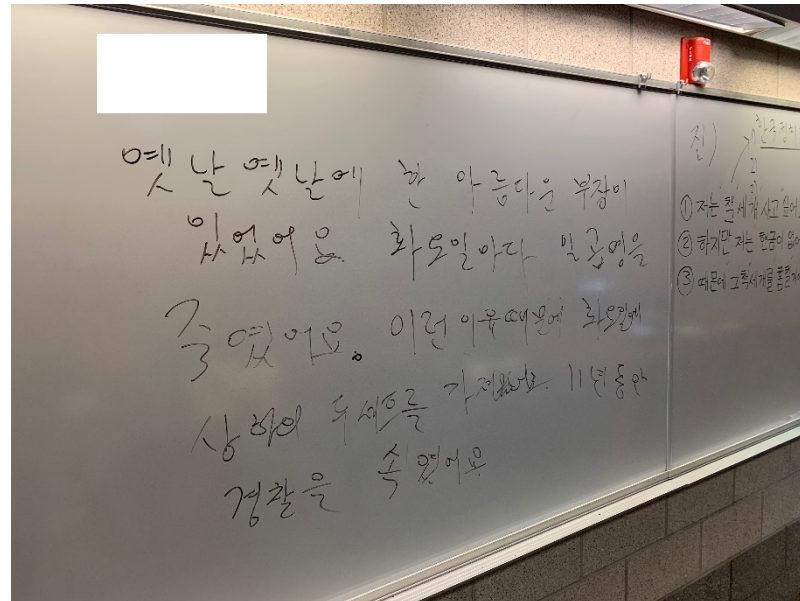 옛날옛날에 한 아름다운 부장이
있었어요 화요일마다 일곱명을
죽였어요. 이런 이유 때문에 화요일에
상하의 두세트를 가져왔어요. 11년동안
경찰을 속였어요
질)
① 저는 책 세개 사고 싶어
② 하지만 저는 현금이 없어
③ 때문에 그책세개를